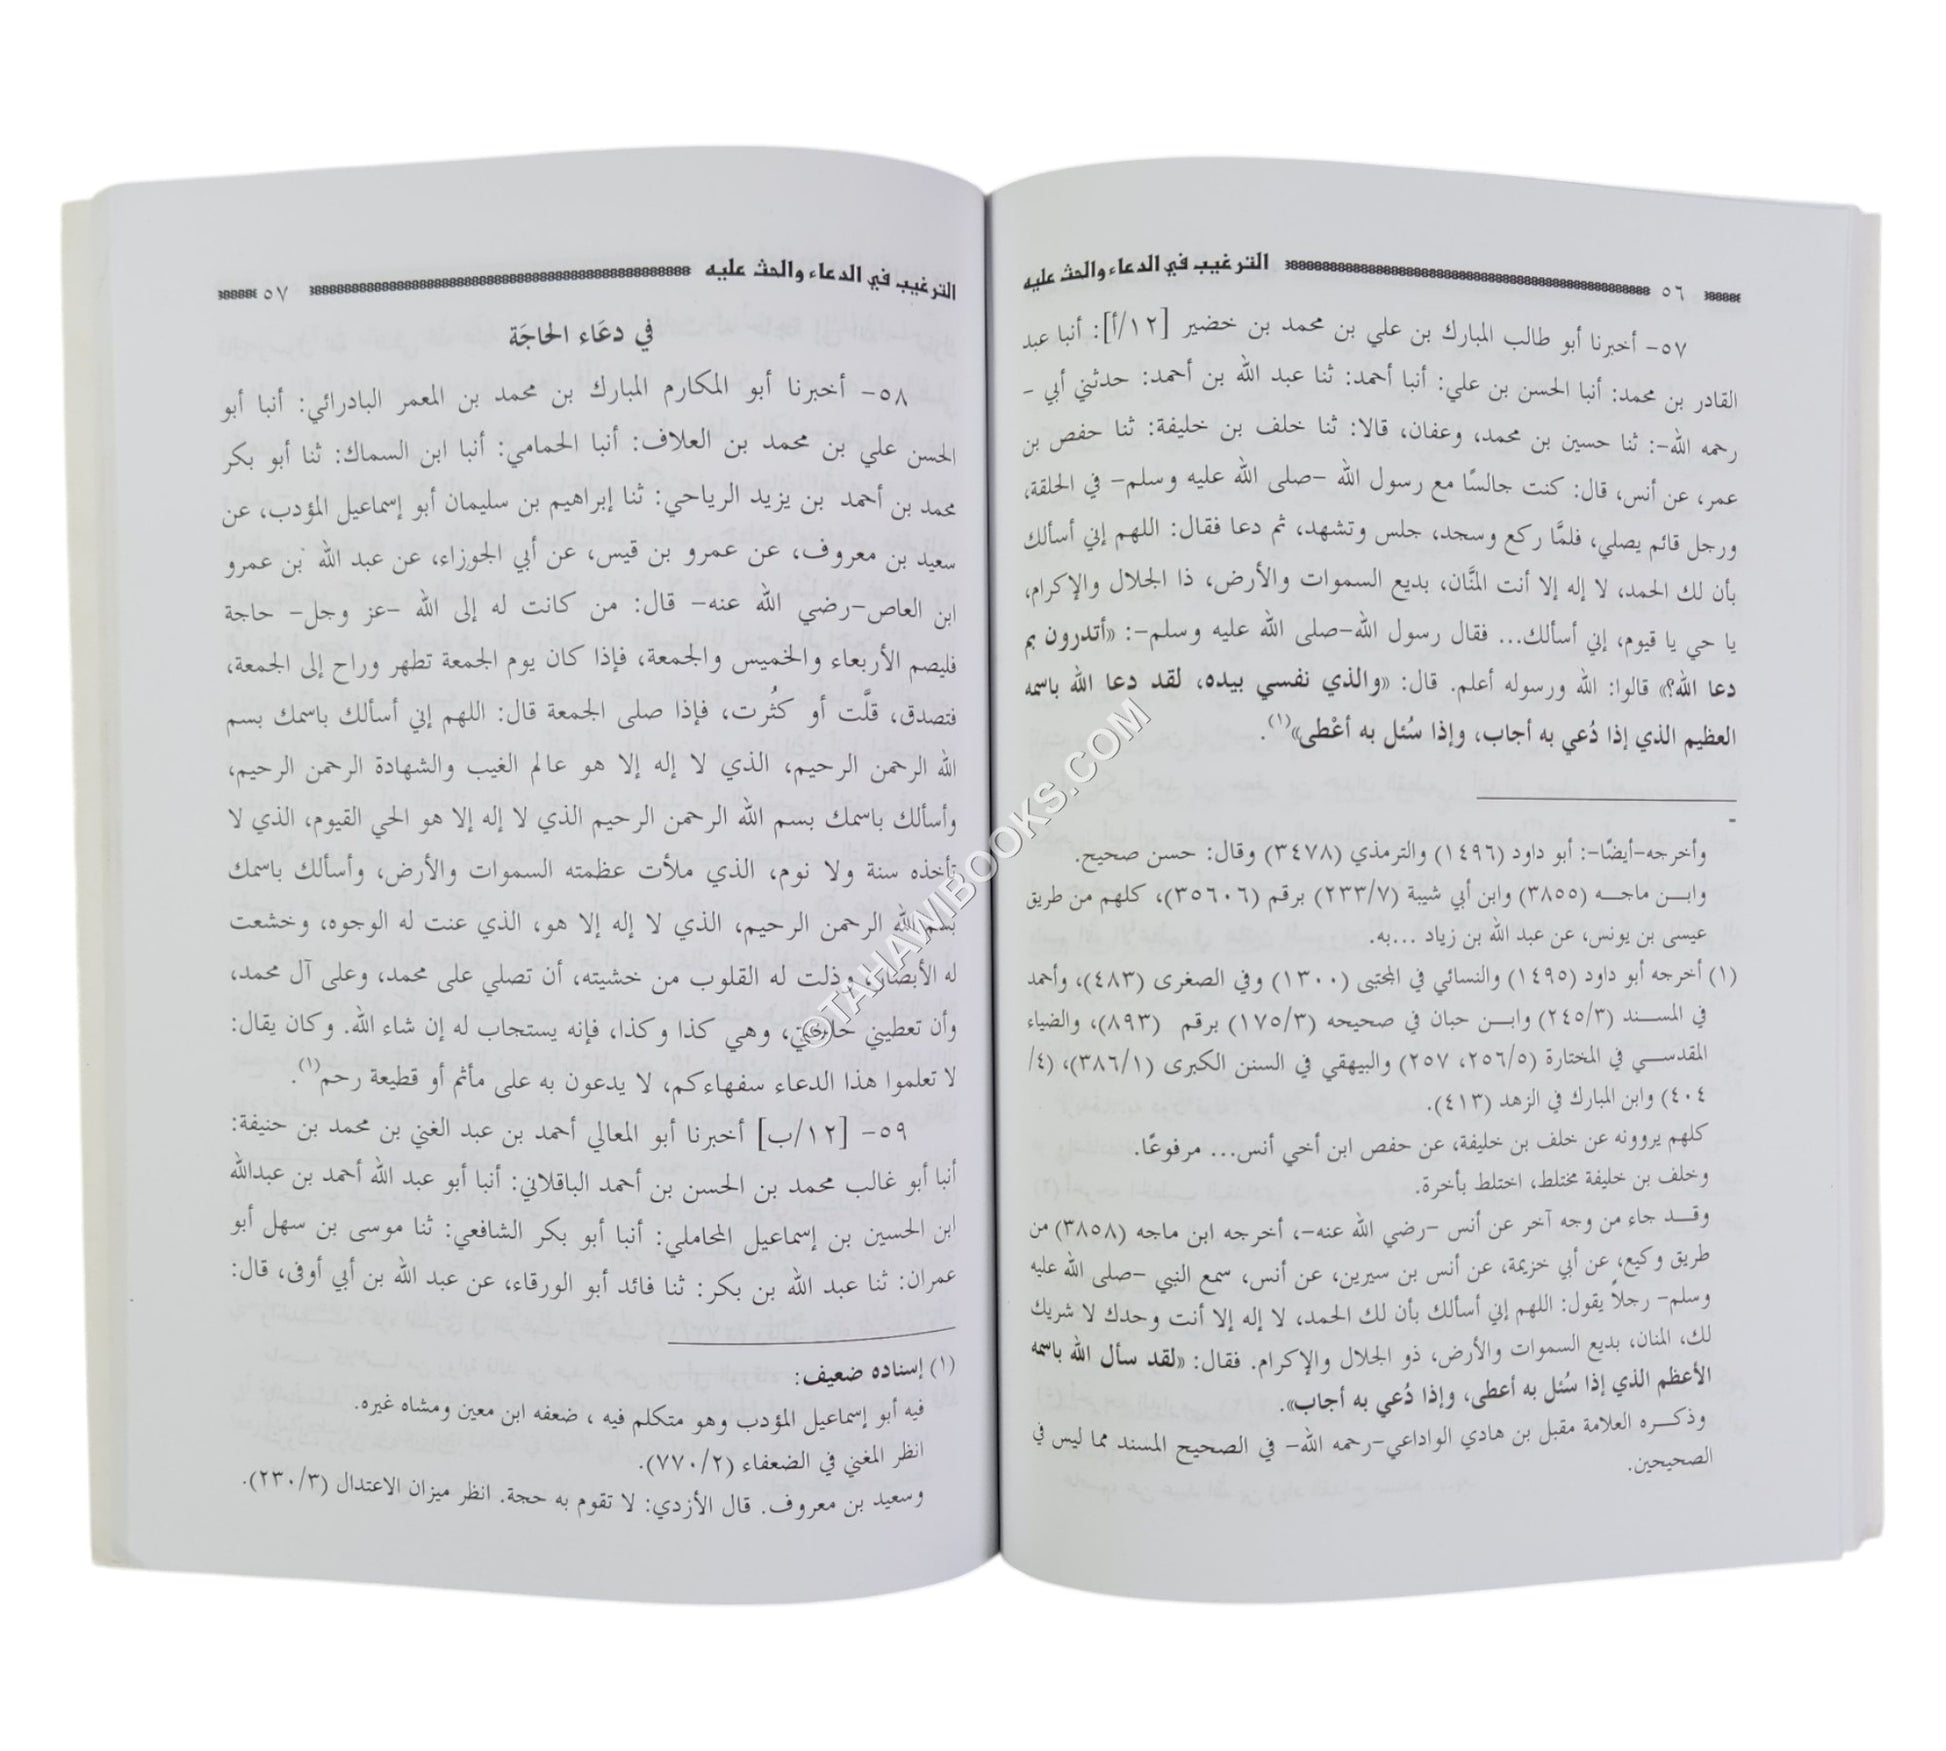 ٥٦ الترغيب في الدعاء والحث عليه
٥٧- أخبرنا أبو طالب المبارك بن علي بن محمد بن خضير [١٢/أ]: أنبا عبد
القادر بن محمد: أنبا الحسن بن علي: أنبا أحمد: ثنا عبد الله بن أحمد: حدثني أبي -
رحمه الله-: ثنا حسين بن محمد، وعفان، قالا: ثنا خلف بن خليفة: ثنا حفص بن
عمر، عن أنس، قال: كنت جالسًا مع رسول الله -صلى الله عليه وسلم- في الحلقة،
ورجل قائم يصلي، فلمَّا ركع وسجد، جلس وتشهد، ثم دعا فقال: اللهم إني أسألك
بأن لك الحمد، لا إله إلا أنت المنَّان، بديع السموات والأرض، ذا الجلال والإكرام،
يا حي يا قيوم، إني أسألك... فقال رسول الله-صلى الله عليه وسلم-: «أتدرون بم
دعا الله؟» قالوا: الله ورسوله أعلم. قال: «والذي نفسي بيده، لقد دعا الله باسمه
العظيم الذي إذا دُعي به أجاب، وإذا سُئل به أعْطى»(١).
وأخرجه-أيضًا-: أبو داود (١٤٩٦) والترمذي (٣٤٧٨) وقال: حسن صحيح.
وابـن ماجـه (٣٨٥٥) وابن أبي شيبة (٢٣٣/٧) برقم (٣٥٦٠٦)، كلهم من طريق
عيسى بن يونس، عن عبد الله بن زياد ...به.
(١) أخرجه أبو داود (١٤٩٥) والنسائي في المجتبى (١٣٠٠) وفي الصغرى (٤٨٣)، وأحمد
في المسند (٢٤٥/٣) وابـن حبان في صحيحه (١٧٥/٣) برقم (٨٩٣)، والضياء
المقدسـي في المختارة (٢٥٦/٥، ٢٥٧) والبيهقي في السنن الكبرى (٣٨٦/١)، (٤/
٤٠٤) وابن المبارك في الزهد (٤١٣).
كلهم يروونه عن خلف بن خليفة، عن حفص ابن أخي أنس... مرفوعًا.
وخلف بن خليفة مختلط، اختلط بأخرة.
وقـد جاء من وجه آخر عن أنس -رضي الله عنه-، أخرجه ابن ماجه (٣٨٥٨) من
طريق وكيع، عن أبي خزيمة، عن أنس بن سيرين، عن أنس، سمع النبي -صلى الله عليه
وسلم- رجلاً يقول: اللهم إني أسألك بأن لك الحمد، لا إله إلا أنت وحدك لا شريك
لك، المنان، بديع السموات والأرض، ذو الجلال والإكرام. فقال: «لقد سأل الله باسمه
الأعظم الذي إذا سُئل به أعطى، وإذا دُعي به أجاب».
وذكـره العلامة مقبل بن هادي الوادعي-رحمه الله- في الصحيح المسند مما ليس في
الصحيحين.
الترغيب في الدعاء والحث عليه ٥٧
في دعَاء الحاجَة
٥٨- أخبرنا أبو المكارم المبارك بن محمد بن المعمر البادرائي: أنبا أبو
الحسن علي بن محمد بن العلاف: أنبا الحمامي: أنبا ابن السماك: ثنا أبو بكر
محمد بن أحمد بن يزيد الرياحي: ثنا إبراهيم بن سليمان أبو إسماعيل المؤدب، عن
سعيد بن معروف، عن عمرو بن قيس، عن أبي الجوزاء، عن عبد الله بن عمرو
ابن العاص-رضي الله عنه- قال: من كانت له إلى الله -عز وجل- حاجة
فليصم الأربعاء والخميس والجمعة، فإذا كان يوم الجمعة تطهر وراح إلى الجمعة،
فتصدق، قلَّت أو كثُرت، فإذا صلى الجمعة قال: اللهم إني أسألك باسمك بسم
الله الرحمن الرحيم، الذي لا إله إلا هو عالم الغيب والشهادة الرحمن الرحيم،
وأسألك باسمك بسم الله الرحمن الرحيم الذي لا إله إلا هو الحي القيوم، الذي لا
تأخذه سنة ولا نوم، الذي ملأت عظمته السموات والأرض، وأسألك باسمك
بسم الله الرحمن الرحيم، الذي لا إله إلا هو، الذي عنت له الوجوه، وخشعت
له الأبصار، وذلت له القلوب من خشيته، أن تصلي على محمد، وعلى آل محمد،
وأن تعطيني حاجتي، وهي كذا وكذا، فإنه يستجاب له إن شاء الله. وكان يقال:
لا تعلموا هذا الدعاء سفهاءكم، لا يدعون به على مأثم أو قطيعة رحم(١).
٥٩- [١٢/ب] أخبرنا أبو المعالي أحمد بن عبد الغني بن محمد بن حنيفة:
أنبا أبو غالب محمد بن الحسن بن أحمد الباقلاني: أنبا أبو عبد الله أحمد بن عبدالله
ابن الحسين بن إسماعيل المحاملي: أنبا أبو بكر الشافعي: ثنا موسى بن سهل أبو
عمران: ثنا عبد الله بن بكر: ثنا فائد أبو الورقاء، عن عبد الله بن أبي أوفى، قال:
(١) إسناده ضعيف:
فيه أبو إسماعيل المؤدب وهو متكلم فيه ، ضعفه ابن معين ومشاه غيره.
انظر المغني في الضعفاء (٧٧٠/٢).
وسعيد بن معروف. قال الأزدي: لا تقوم به حجة. انظر ميزان الاعتدال (٢٣٠/٣).
©TAHAWIBOOKS.COM